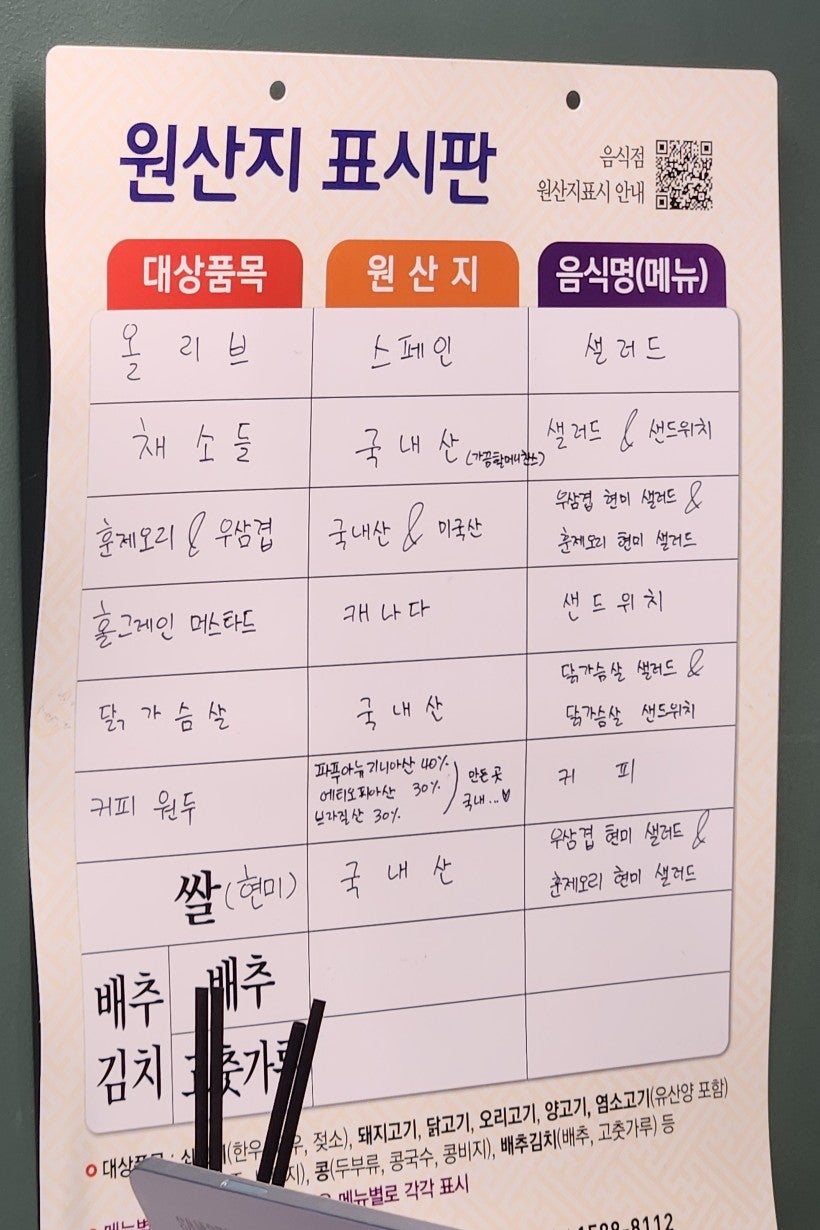 원산지 표시판
음식점
원산지표시 안내
대상품목 원산지 음식명(메뉴)
올리브 스페인 샐러드
채소들 국내산 (가끔할머니찬스) 샐러드 & 샌드위치
훈제오리 & 우삼겹 국내산 & 미국산 우삼겹 현미 샐러드 &
훈제오리 현미 샐러드
홀그레인 머스타드 캐나다 샌드위치
닭가슴살 국내산 닭가슴살 샐러드 &
닭가슴살 샌드위치
커피 원두 파푸아뉴기니아산 40%
에티오피아산 30%
브라질산 30%
만든곳
국내...♥
커피
쌀(현미) 국내산 우삼겹 현미 샐러드 &
훈제오리 현미 샐러드
배추
김치
배추
고춧가루
(한우, 젖소), 돼지고기, 닭고기, 오리고기, 양고기, 염소고기(유산양 포함)
콩(두부류, 콩국수, 콩비지), 배추김치(배추, 고춧가루) 등
메뉴별로 각각 표시
1588-8112